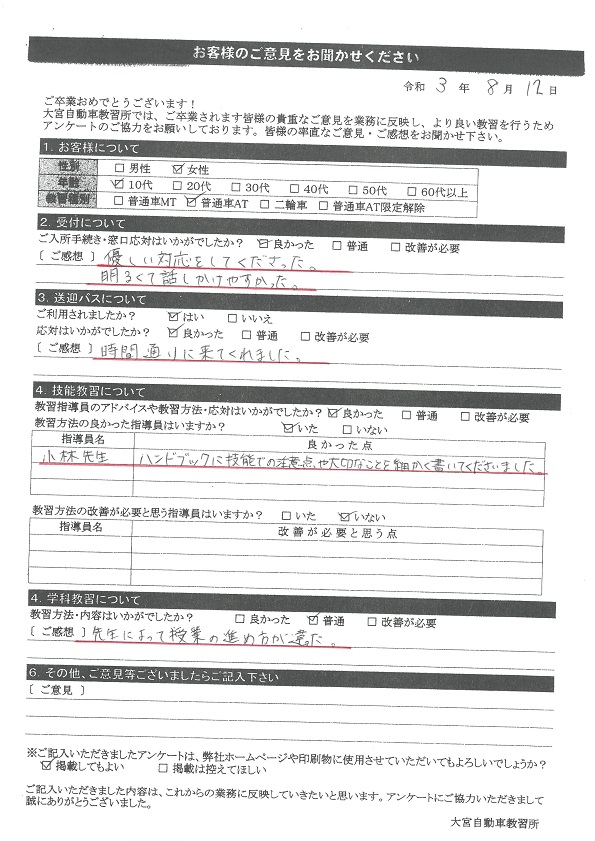 お客様のご意見をお聞かせください
令和 3 年 8 月 12 日
ご卒業おめでとうございます！
大宮自動車教習所では、ご卒業されます皆様の貴重なご意見を業務に反映し、より良い教習を行うため
アンケートのご協力をお願いしております。皆様の率直なご意見・ご感想をお聞かせ下さい。
1. お客様について
性別 □ 男性 ☑ 女性
年齢 ☑ 10代 □ 20代 □ 30代 □ 40代 □ 50代 □ 60代以上
教習種別 □ 普通車MT ☑ 普通車AT □ 二輪車 □ 普通車AT限定解除
2. 受付について
ご入所手続き・窓口応対はいかがでしたか？ ☑ 良かった □ 普通 □ 改善が必要
〔 ご感想 〕 優しい対応をしてくださった。
明るくて話しかけやすかった。
3. 送迎バスについて
ご利用されましたか？ ☑ はい □ いいえ
応対はいかがでしたか？ ☑ 良かった □ 普通 □ 改善が必要
〔 ご感想 〕 時間通りに来てくれました。
4. 技能教習について
教習指導員のアドバイスや教習方法・応対はいかがでしたか？ ☑ 良かった □ 普通 □ 改善が必要
教習方法の良かった指導員はいますか？ ☑ いた □ いない
指導員名 良かった点
小林先生 ハンドブックに技能での注意点や大切なことを細かく書いてくださいました。
教習方法の改善が必要と思う指導員はいますか？ □ いた ☑ いない
指導員名 改善が必要と思う点
4. 学科教習について
教習方法・内容はいかがでしたか？ □ 良かった ☑ 普通 □ 改善が必要
〔 ご感想 〕 先生によって授業の進め方が違った。
6. その他、ご意見等ございましたらご記入下さい
〔 ご意見 〕
※ご記入いただきましたアンケートは、弊社ホームページや印刷物に使用させていただいてもよろしいでしょうか？
☑ 掲載してもよい □ 掲載は控えてほしい
ご記入いただきました内容は、これからの業務に反映していきたいと思います。アンケートにご協力いただきまして
誠にありがとうございました。
大宮自動車教習所